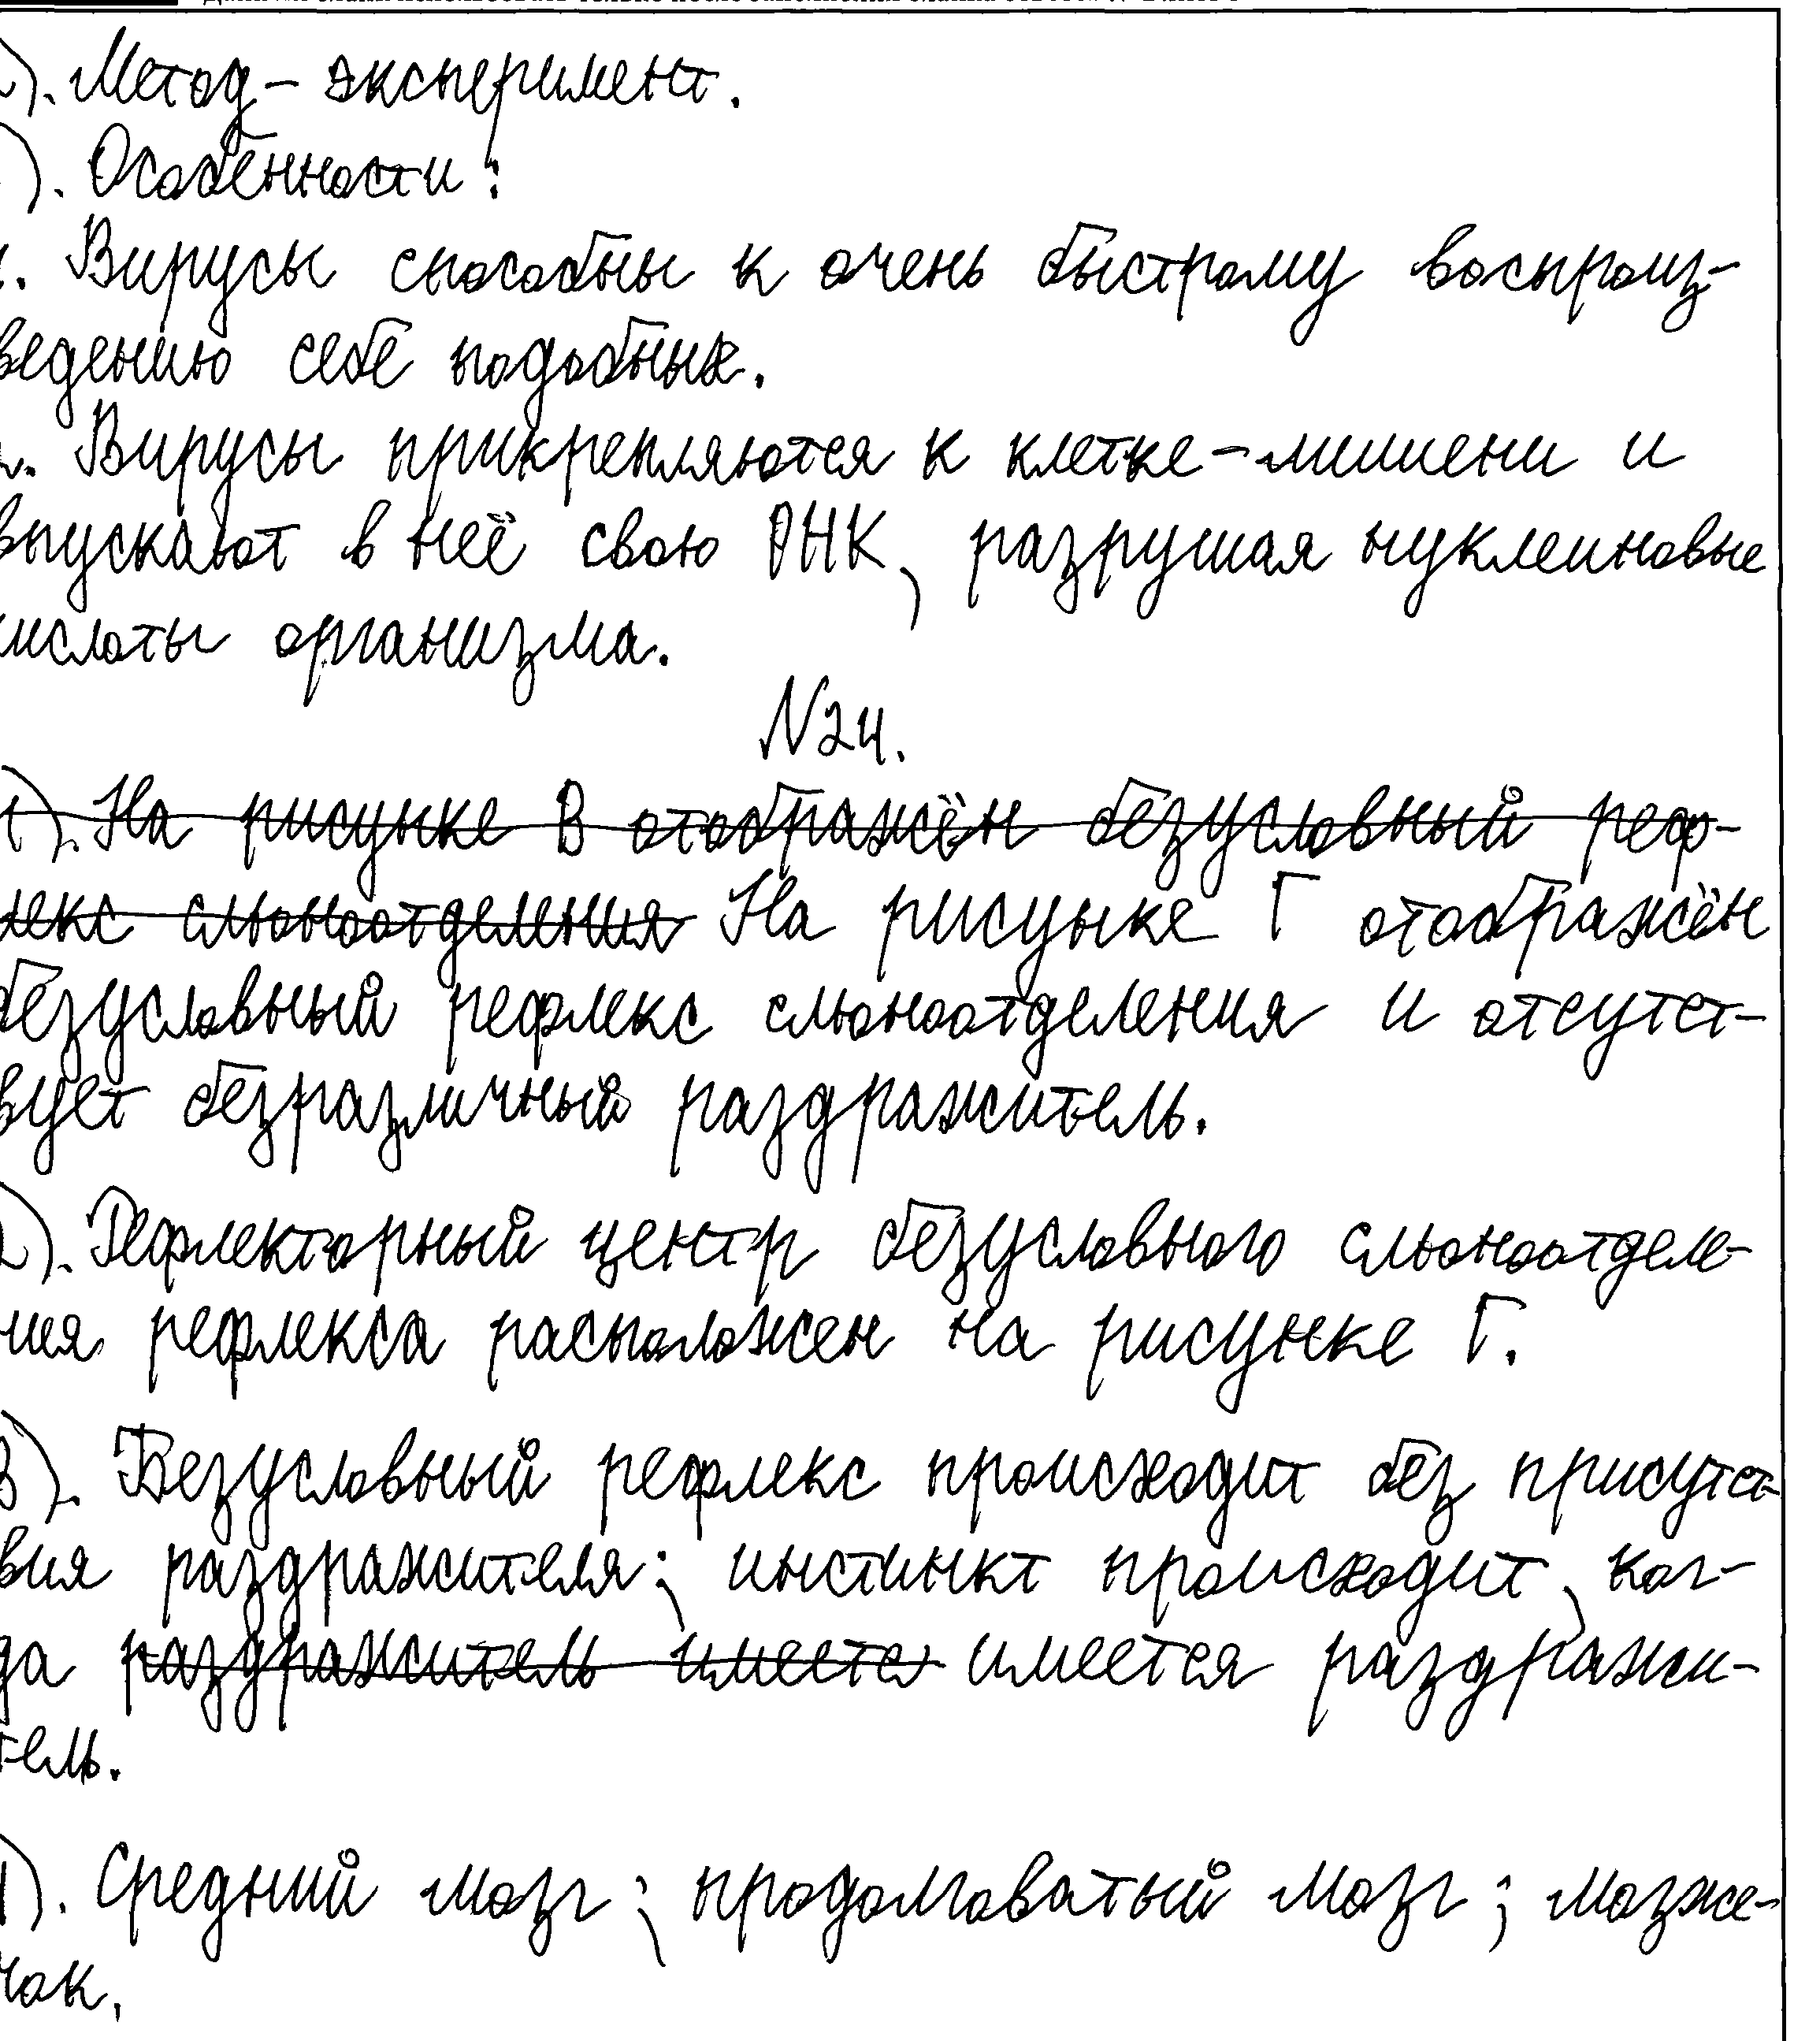 ). Метод – эксперимент.
). Особенности:
. Вирусы способны к очень быстрому воспроиз-
ведению себе подобных.
. Вирусы прикрепляются к клетке-мишени и
впускают в неё свою РНК, разрушая нуклеиновые
кислоты организма.
N24.
1). На рисунке В отображён безусловный реф-
лекс слюноотделения На рисунке Г отображён
безусловный рефлекс слюноотделения и отсутст-
вует безразличный раздражитель.
2). Рефлекторный центр безусловного слюноотделе-
ния рефлекса расположен на рисунке Г.
3). Безусловный рефлекс происходит без присутст-
вия раздражителя; инстинкт происходит, ког-
да раздражитель имеется имеется раздражи-
тель.
). Средний мозг; продолговатый мозг; мозже-
чок.